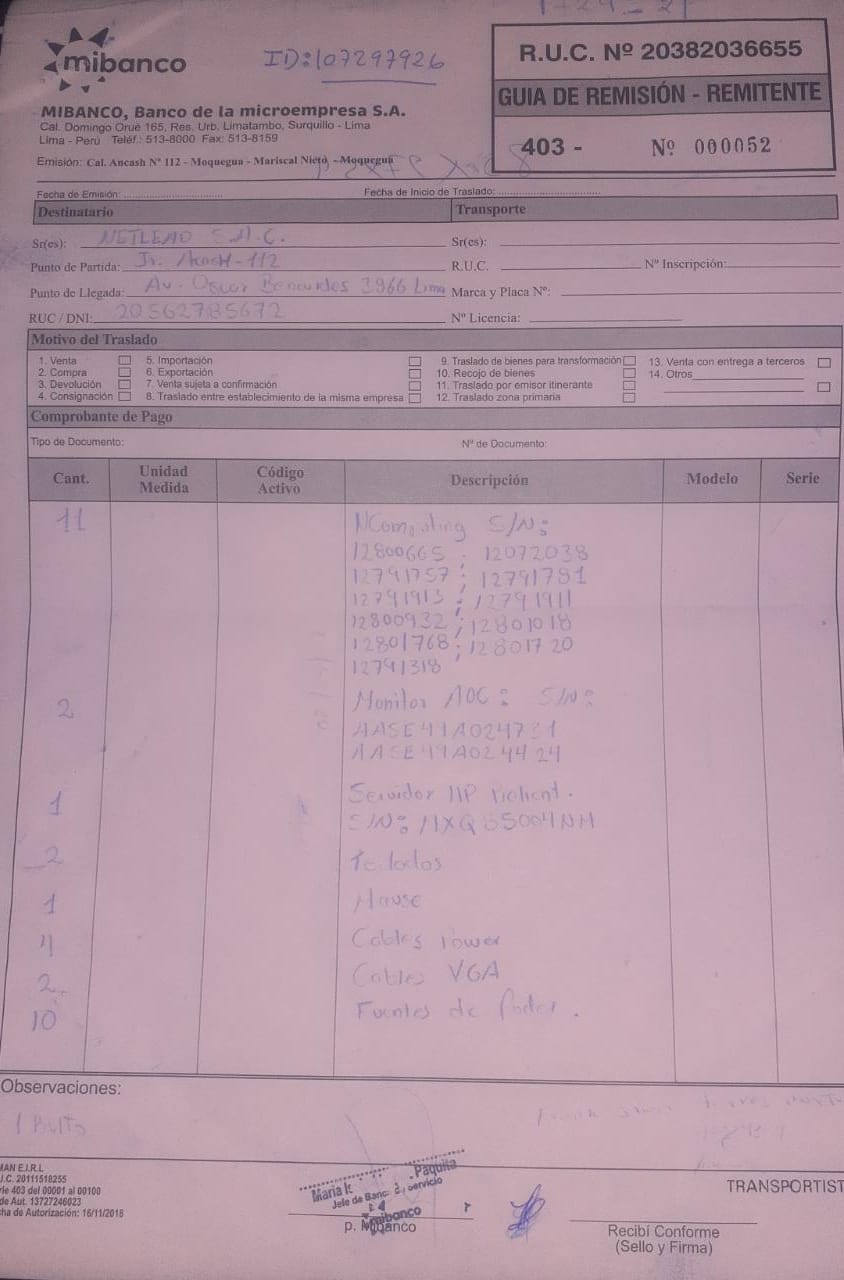 mibanco
ID:107297926
MIBANCO, Banco de la microempresa S.A.
Cal. Domingo Orué 165, Res. Urb. Limatambo, Surquillo - Lima
Lima - Perú Teléf.: 513-8000 Fax: 513-8159
Emisión: Cal. Ancash Nº 112 - Moquegua - Mariscal Nieto, - Moquegua
R.U.C. Nº 20382036655
GUIA DE REMISIÓN - REMITENTE
403 - Nº 000052
Fecha de Emisión: Fecha de Inicio de Traslado:
Destinatario Transporte
Sr(es): S.A.C. Sr(es):
Punto de Partida: Jr. 112 R.U.C. Nº Inscripción:
Punto de Llegada: Av. Oscar Benavides 3966 Lima Marca y Placa Nº:
RUC / DNI: 20562785672 Nº Licencia:
Motivo del Traslado
1. Venta 5. Importación 9. Traslado de bienes para transformación 13. Venta con entrega a terceros
2. Compra 6. Exportación 10. Recojo de bienes 14. Otros
3. Devolución 7. Venta sujeta a confirmación 11. Traslado por emisor itinerante
4. Consignación 8. Traslado entre establecimiento de la misma empresa 12. Traslado zona primaria
Comprobante de Pago
Tipo de Documento: Nº de Documento:
Cant. Unidad Medida Código Activo Descripción Modelo Serie
11 NComputing S/N:
12800665 ; 12072038
12791757 ; 12791781
12791913 ; 12791911
12800932 ; 12801018
12801768 ; 12801720
12791318
2 Monitor AOC: S/N:
AASE41A024424
1 Servidor HP
S/N:
2 Teclados
1 Mause
4 Cables Power
2 Cables VGA
10 Fuentes de Poder.
Observaciones:
1 Bulto
MAN E.I.R.L
.U.C. 20111518255
rie 403 del 00001 al 00100
de Aut. 13727246023
cha de Autorización: 16/11/2016
Maria Paquita
Jefe de Banc. Servicio
Mibanco
p. Mibanco
TRANSPORTIST
Recibí Conforme
(Sello y Firma)